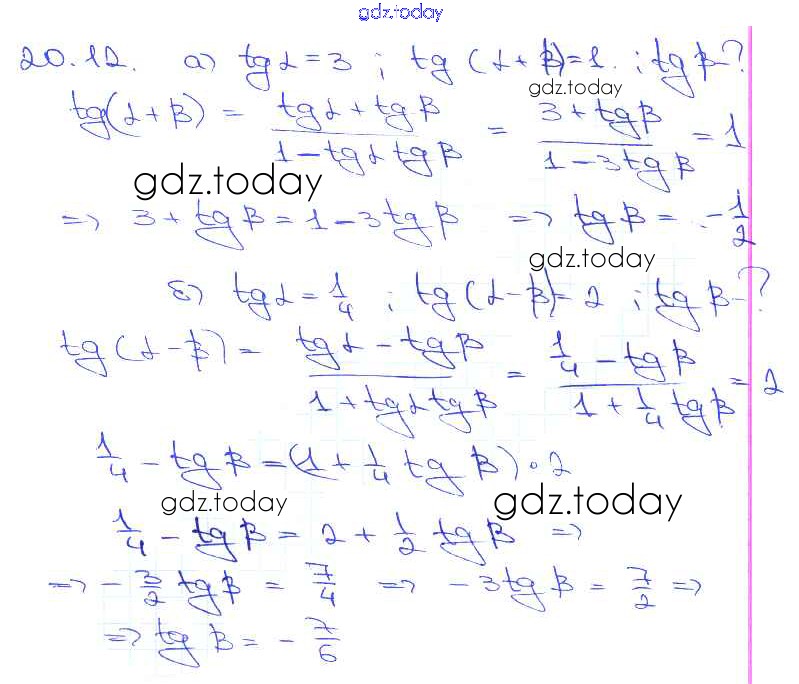 gdz.today
20.12. а) tgα = 3 ; tg (α + β) = 1. ; tg β - ?
gdz.today
tg(α + β) = (tgα + tgβ)/(1 - tgα tgβ) = (3 + tgβ)/(1 - 3tgβ) = 1
gdz.today
=> 3 + tgβ = 1 - 3tgβ => tgβ = -1/2
gdz.today
б) tgα = 1/4 ; tg(α - β) = 2 ; tgβ - ?
tg(α - β) = (tgα - tgβ)/(1 + tgα tgβ) = (1/4 - tgβ)/(1 + 1/4 tgβ) = 2
1/4 - tgβ = (1 + 1/4 tgβ) · 2
gdz.today gdz.today
1/4 - tgβ = 2 + 1/2 tgβ =>
=> - 3/2 tgβ = 7/4 => - 3tgβ = 7/2 =>
=> tgβ = - 7/6